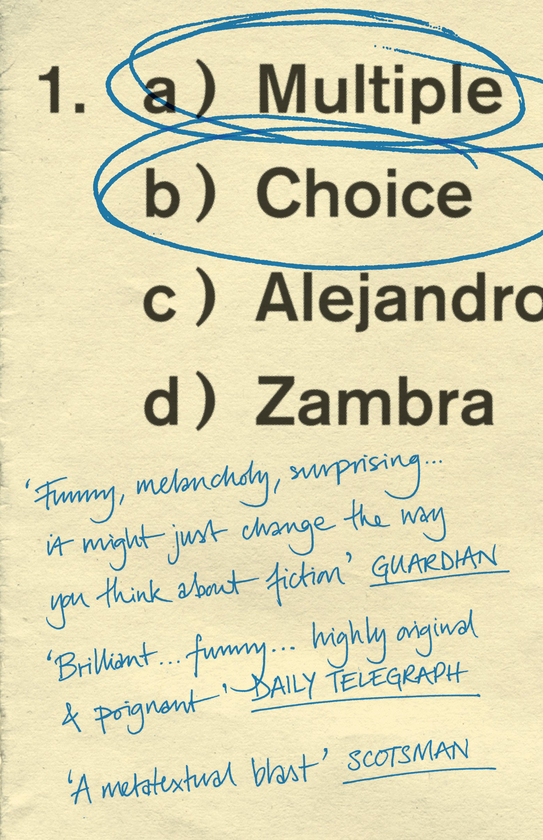 1. a) Multiple
b) Choice
c) Alejandro
d) Zambra
'Funny, melancholy, surprising...
it might just change the way
you think about fiction' GUARDIAN
'Brilliant... funny... highly original
& poignant' DAILY TELEGRAPH
'A metatextual blast' SCOTSMAN